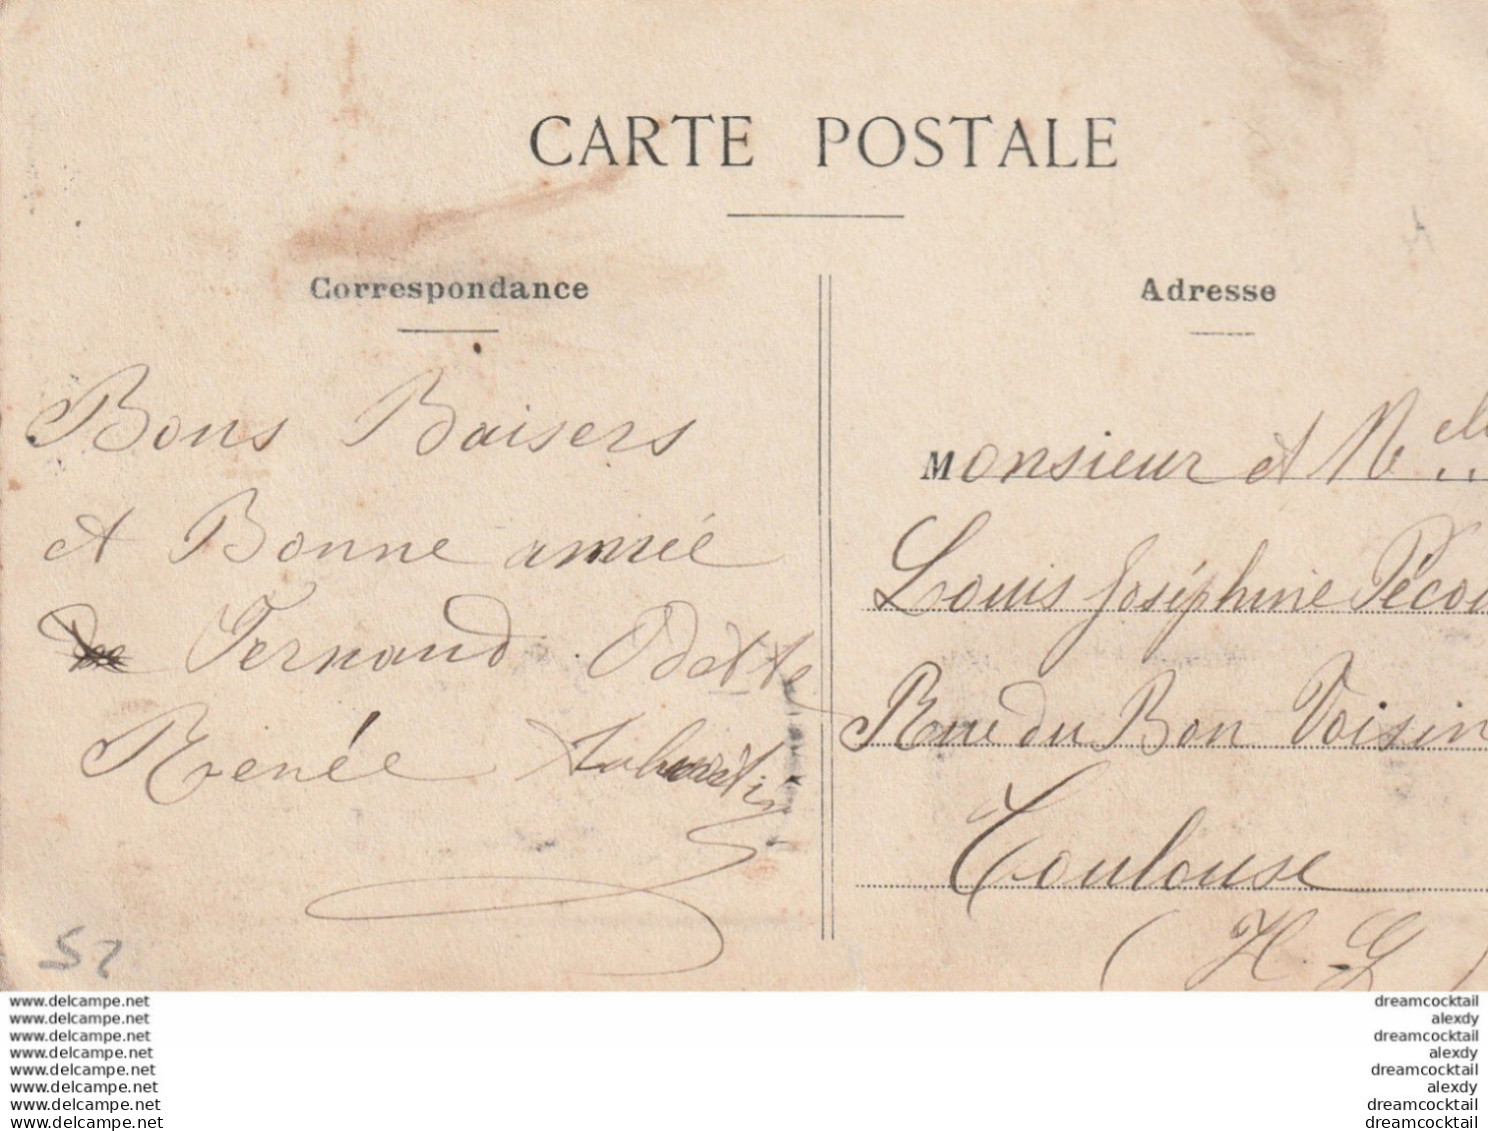 CARTE POSTALE
Correspondance
Bons Baisers
et Bonne année
de Fernand Odette
Renée
Adresse
Monsieur et M elle
Louis Joséphine Pécou
Rue du Bon Voisin
Toulouse
(H. G)
52
www.delcampe.net
www.delcampe.net
www.delcampe.net
www.delcampe.net
www.delcampe.net
www.delcampe.net
www.delcampe.net
www.delcampe.net
dreamcocktail
alexdy
dreamcocktail
alexdy
dreamcocktail
alexdy
dreamcocktail
dreamcocktail